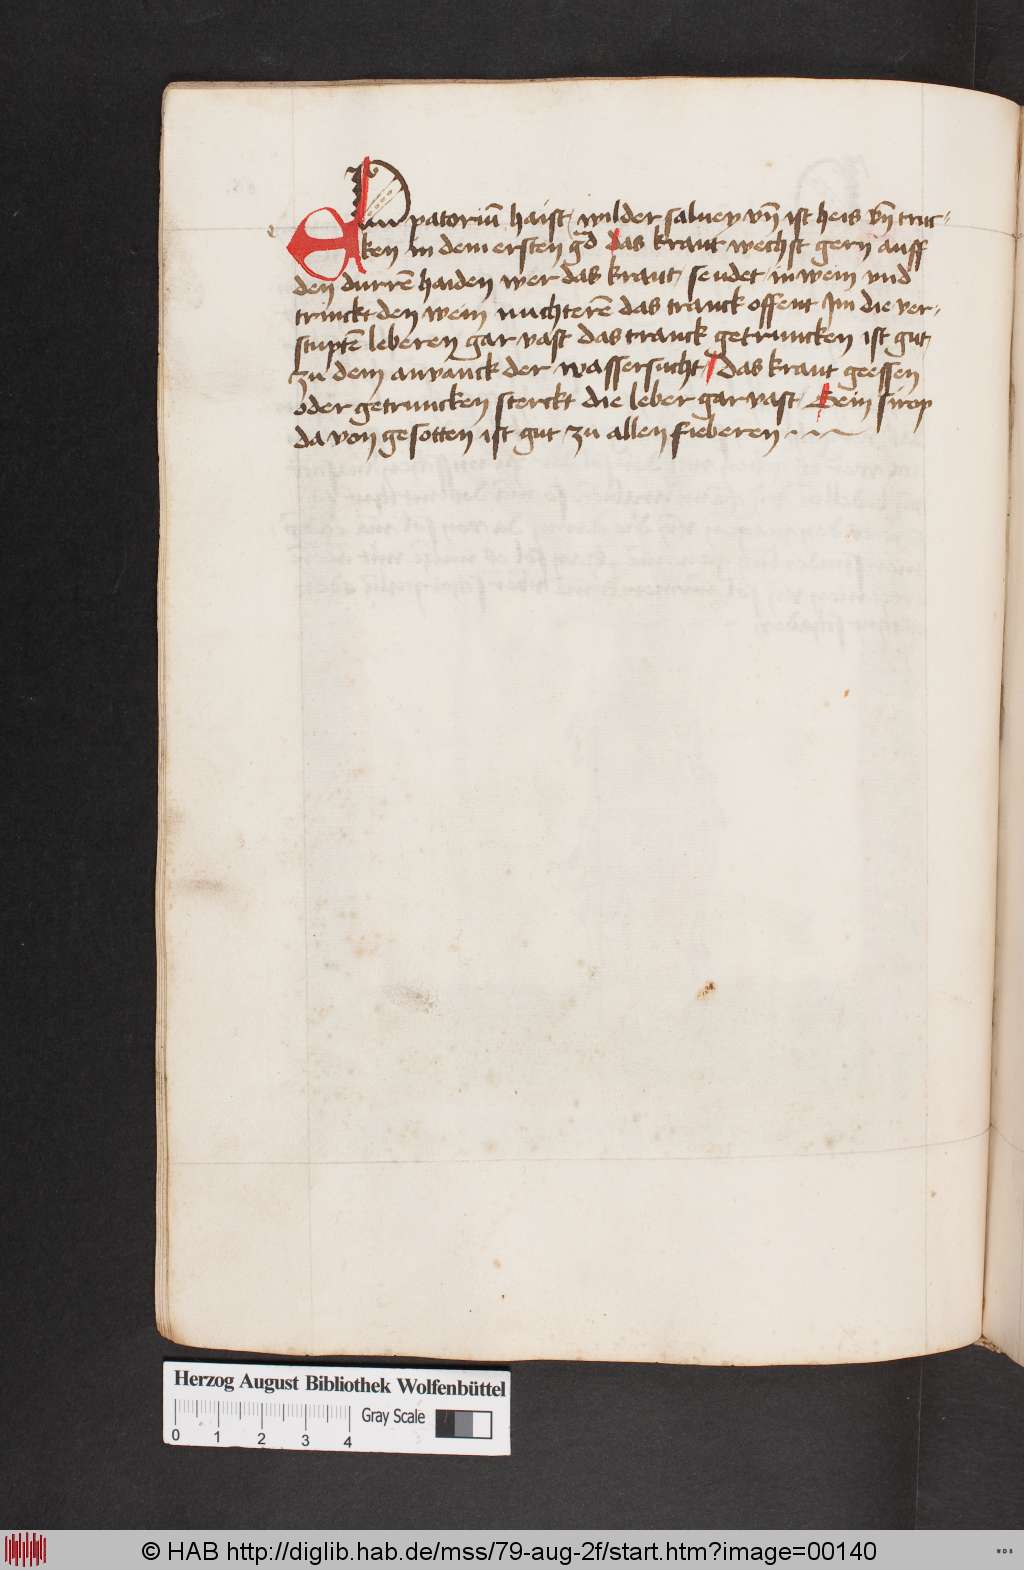 Eupatoriū haist wilder saluey vn̄ ist heis vn̄ truc-
ken in dem ersten g̃d Das kraut wechst gern auff
den durrē haiden wer das kraut seudet in wein vnd
trinckt den wein nuchterē das tranck offent Im die ver-
stuptē leberen gar vast das tranck getruncken ist gut
zu dem anvanck der wassersucht Das kraut geessen
oder getruncken sterckt die leber gar vast Sein sirop
da von gesotten ist gut zu allen fieberen
Herzog August Bibliothek Wolfenbüttel
Gray Scale
0 1 2 3 4
© HAB http://diglib.hab.de/mss/79-aug-2f/start.htm?image=00140